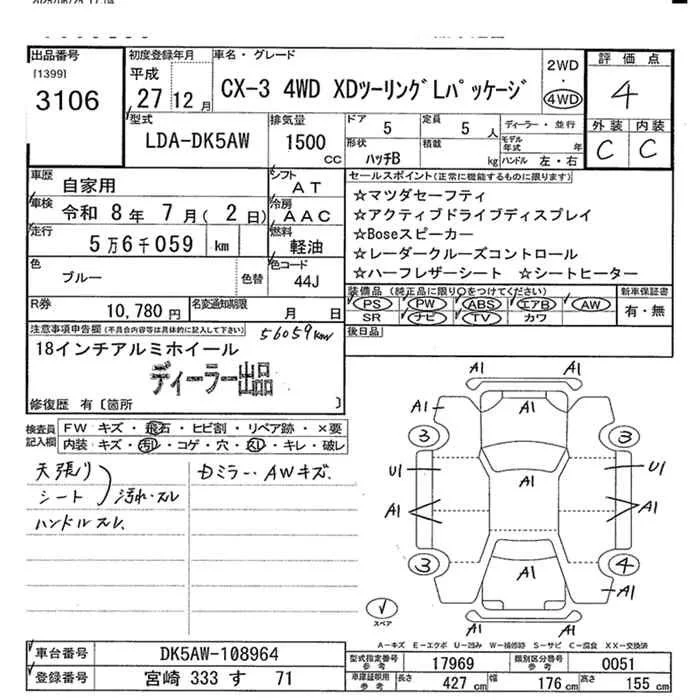 出品番号
[1399]
3106
初度登録年月
平成
27 12 月
車名・グレード
CX-3 4WD XDツーリング Lパッケージ
2WD
・
4WD
評価点
4
外装 内装
C C
型式
LDA-DK5AW
排気量
1500
CC
ドア
5
定員
5 人
形状
ハッチB
積載
kg
ディーラー・並行
モデル年式 年
ハンドル 左・右
車歴
自家用
シフト
AT
車検
令和 8年 7月(2日)
冷房
AAC
走行
5万6千059 km
燃料
軽油
色
ブルー
色替
色コード
44J
R券
10,780 円
名変通知期限
月 日
セールスポイント(正常に機能するものに限ります)
☆マツダセーフティ
☆アクティブドライブディスプレイ
☆Boseスピーカー
☆レーダークルーズコントロール
☆ハーフレザーシート ☆シートヒーター
装備品(純正品に限り○をつけてください)
新車保証書
PS PW ABS エアB AW
SR ナビ TV カワ
有・無
後日品
注意事項申告欄(不具合内容等は具体的に記入して下さい)
56059km
18インチアルミホイール
ディーラー出品
修復歴 有〔箇所 〕
検査員記入欄
FW キズ・飛石・ヒビ割・リペア跡・×要
内装・キズ・汚レ・コゲ・穴・スレ・キレ・破レ
天張り
シート 汚れ・スレ
ハンドルスレ
Dミラー・AWキズ.
A1
A1
A1
A1
A1
3
3
U1
A1
U1
A1
A1
3
A1
4
A1
A1
スペア
A-キズ E-エクボ U-凹み W-補修跡 S-サビ C-腐食 XX-交換済
車台番号
DK5AW-108964
登録番号
宮崎 333 す 71
型式指定番号
参考
17969
類別区分番号
参考
0051
車庫証明用
参考
長さ
427 cm
幅
176 cm
高さ
155 cm